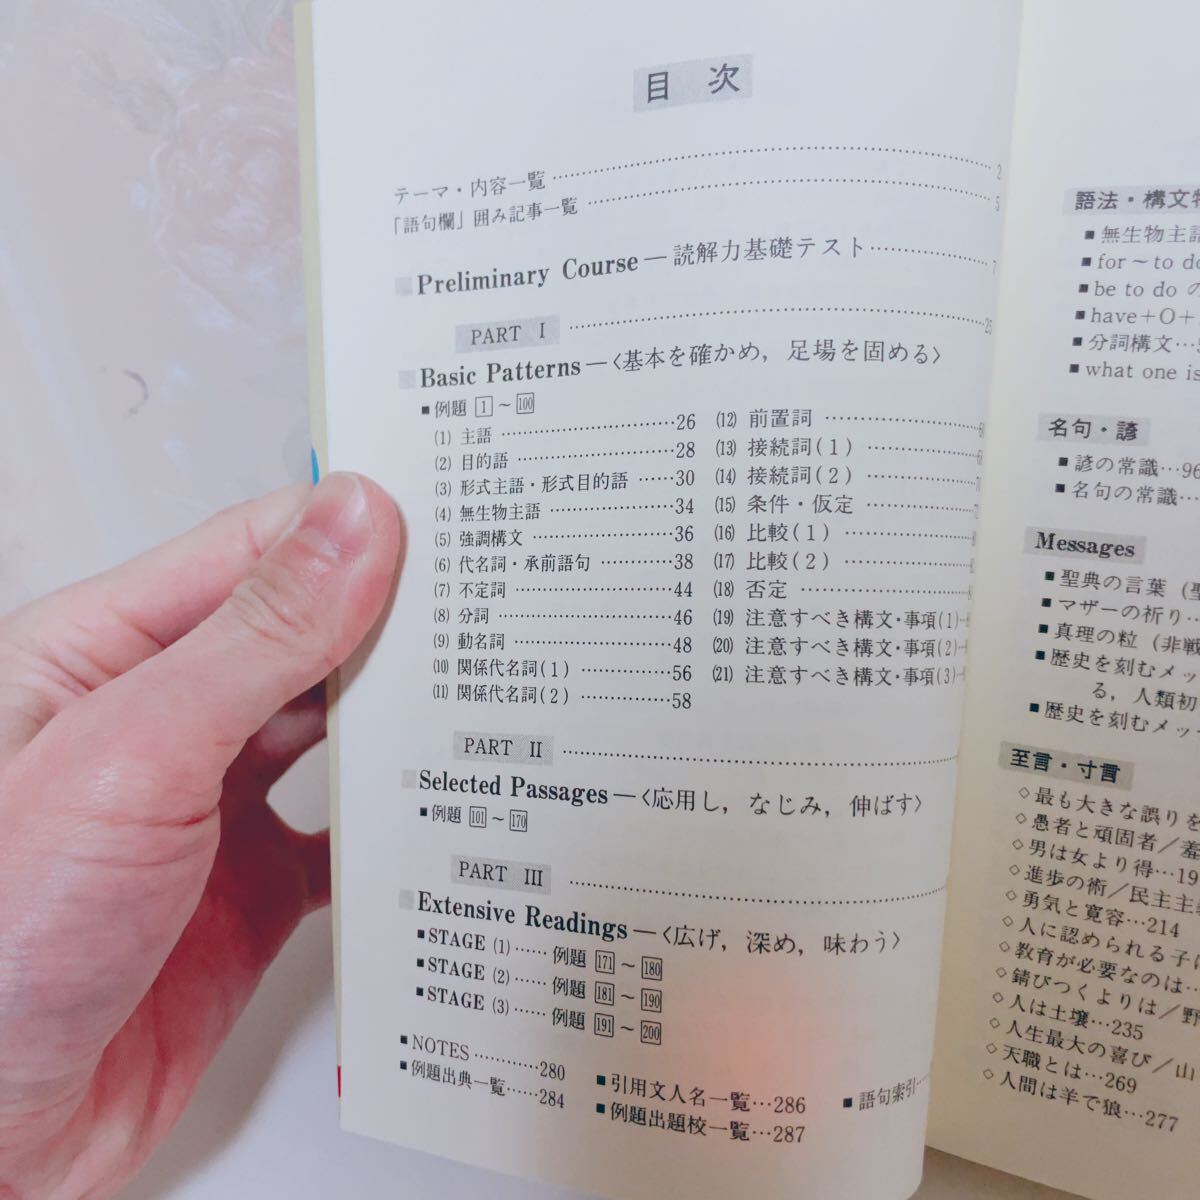 目次
テーマ・内容一覧 2
「語句欄」囲み記事一覧 5
■ Preliminary Course—読解力基礎テスト 7
PART Ⅰ 25
■ Basic Patterns—〈基本を確かめ，足場を固める〉
■ 例題 1 〜 100
(1) 主語 26
(2) 目的語 28
(3) 形式主語・形式目的語 30
(4) 無生物主語 34
(5) 強調構文 36
(6) 代名詞・承前語句 38
(7) 不定詞 44
(8) 分詞 46
(9) 動名詞 48
(10) 関係代名詞(1) 56
(11) 関係代名詞(2) 58
(12) 前置詞
(13) 接続詞(1)
(14) 接続詞(2)
(15) 条件・仮定
(16) 比較(1)
(17) 比較(2)
(18) 否定
(19) 注意すべき構文・事項(1)
(20) 注意すべき構文・事項(2)
(21) 注意すべき構文・事項(3)
PART Ⅱ
■ Selected Passages—〈応用し，なじみ，伸ばす〉
■ 例題 101 〜 170
PART Ⅲ
■ Extensive Readings—〈広げ，深め，味わう〉
■ STAGE (1)…… 例題 171 〜 180
■ STAGE (2)…… 例題 181 〜 190
■ STAGE (3)…… 例題 191 〜 200
■ NOTES 280
■ 例題出典一覧 284
■ 引用文人名一覧…286
■ 例題出題校一覧…287
■ 語句索引
語法・構文
■ 無生物主語
■ for〜to do
■ be to do の
■ have+O+
■ 分詞構文
■ what one is
名句・諺
■ 諺の常識…96
■ 名句の常識
Messages
■ 聖典の言葉
■ マザーの祈り
■ 真理の粒（非戦
■ 歴史を刻むメッ
る，人類初
■ 歴史を刻むメッ
至言・寸言
◇ 最も大きな誤りを
◇ 愚者と頑固者／
◇ 男は女より得…19
◇ 進歩の術／民主主
◇ 勇気と寛容…214
◇ 人に認められる子
◇ 教育が必要なのは
◇ 錆びつくよりは／野
◇ 人は土壌…235
◇ 人生最大の喜び／山
◇ 天職とは…269
◇ 人間は羊で狼…277